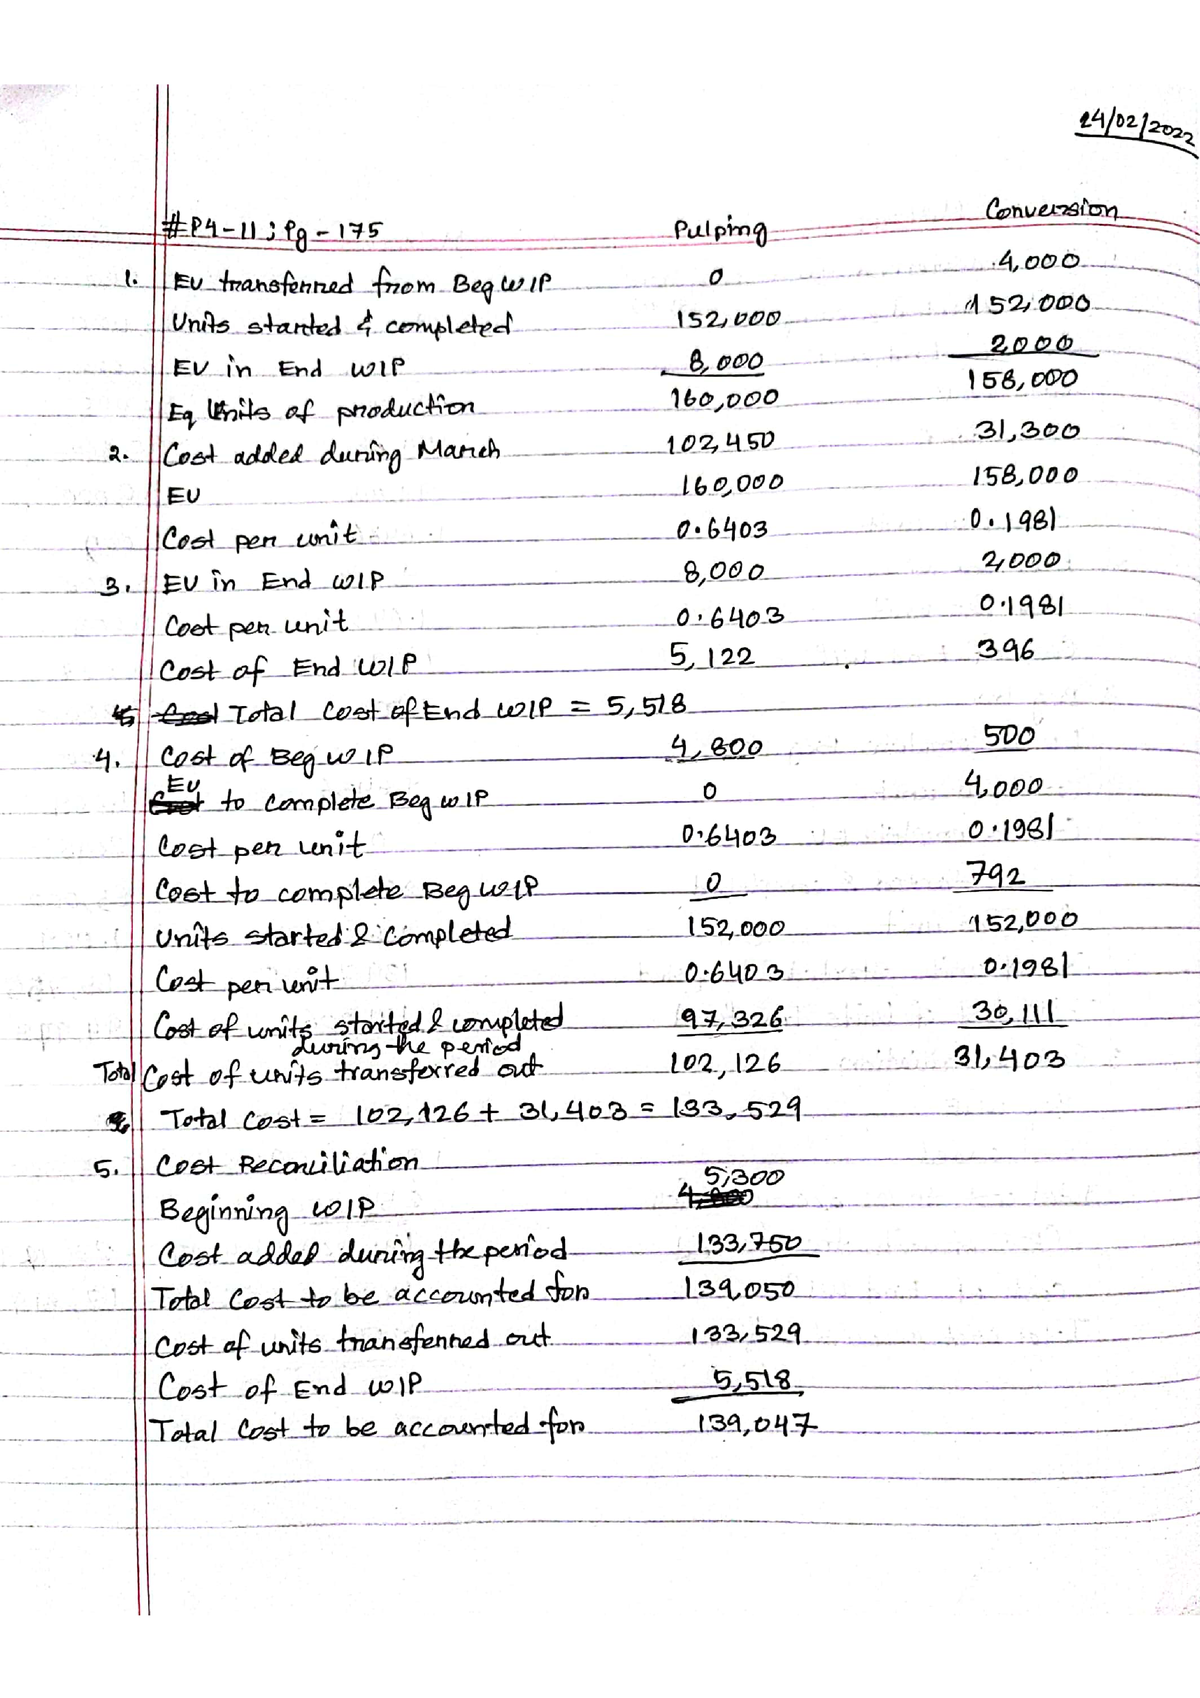 24/02/2022
#P4-11; Pg-175 Pulping Conversion
1. EU transferred from Beg WIP 0 4,000
Units started & completed 152,000 152,000
EU in End WIP 8,000 2000
Eq Units of production 160,000 158,000
2. Cost added during March 102,450 31,300
EU 160,000 158,000
Cost per unit 0.6403 0.1981
3. EU in End WIP 8,000 2,000
Cost per unit 0.6403 0.1981
Cost of End WIP 5,122 396
Total Cost of End WIP = 5,518
4. Cost of Beg WIP 4,800 500
EU to complete Beg WIP 0 4,000
Cost per unit 0.6403 0.1981
Cost to complete Beg WIP 0 792
Units started & completed 152,000 152,000
Cost per unit 0.6403 0.1981
Cost of units started & completed 97,326 30,111
during the period
Total Cost of units transferred out 102,126 31,403
Total Cost = 102,126 + 31,403 = 133,529
5. Cost Reconciliation
Beginning WIP 5,300
Cost added during the period 133,750
Total Cost to be accounted for 139,050
Cost of units transferred out 133,529
Cost of End WIP 5,518
Total Cost to be accounted for 139,047